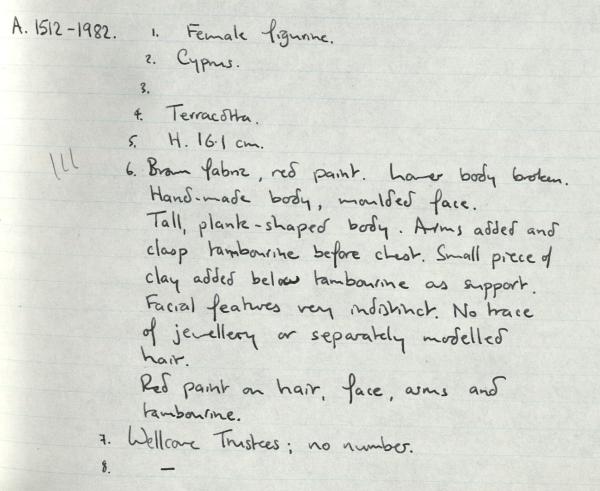 A. 1512-1982. 1. Female figurine.
2. Cyprus.
3.
4. Terracotta.
5. H. 16.1 cm.
6. Brown fabric, red paint. Lower body broken.
Hand-made body, moulded face.
Tall, plank-shaped body. Arms added and
clasp tambourine before chest. Small piece of
clay added below tambourine as support.
Facial features very indistinct. No trace
of jewellery or separately modelled
hair.
Red paint on hair, face, arms and
tambourine.
7. Wellcome Trustees; no number.
8. —